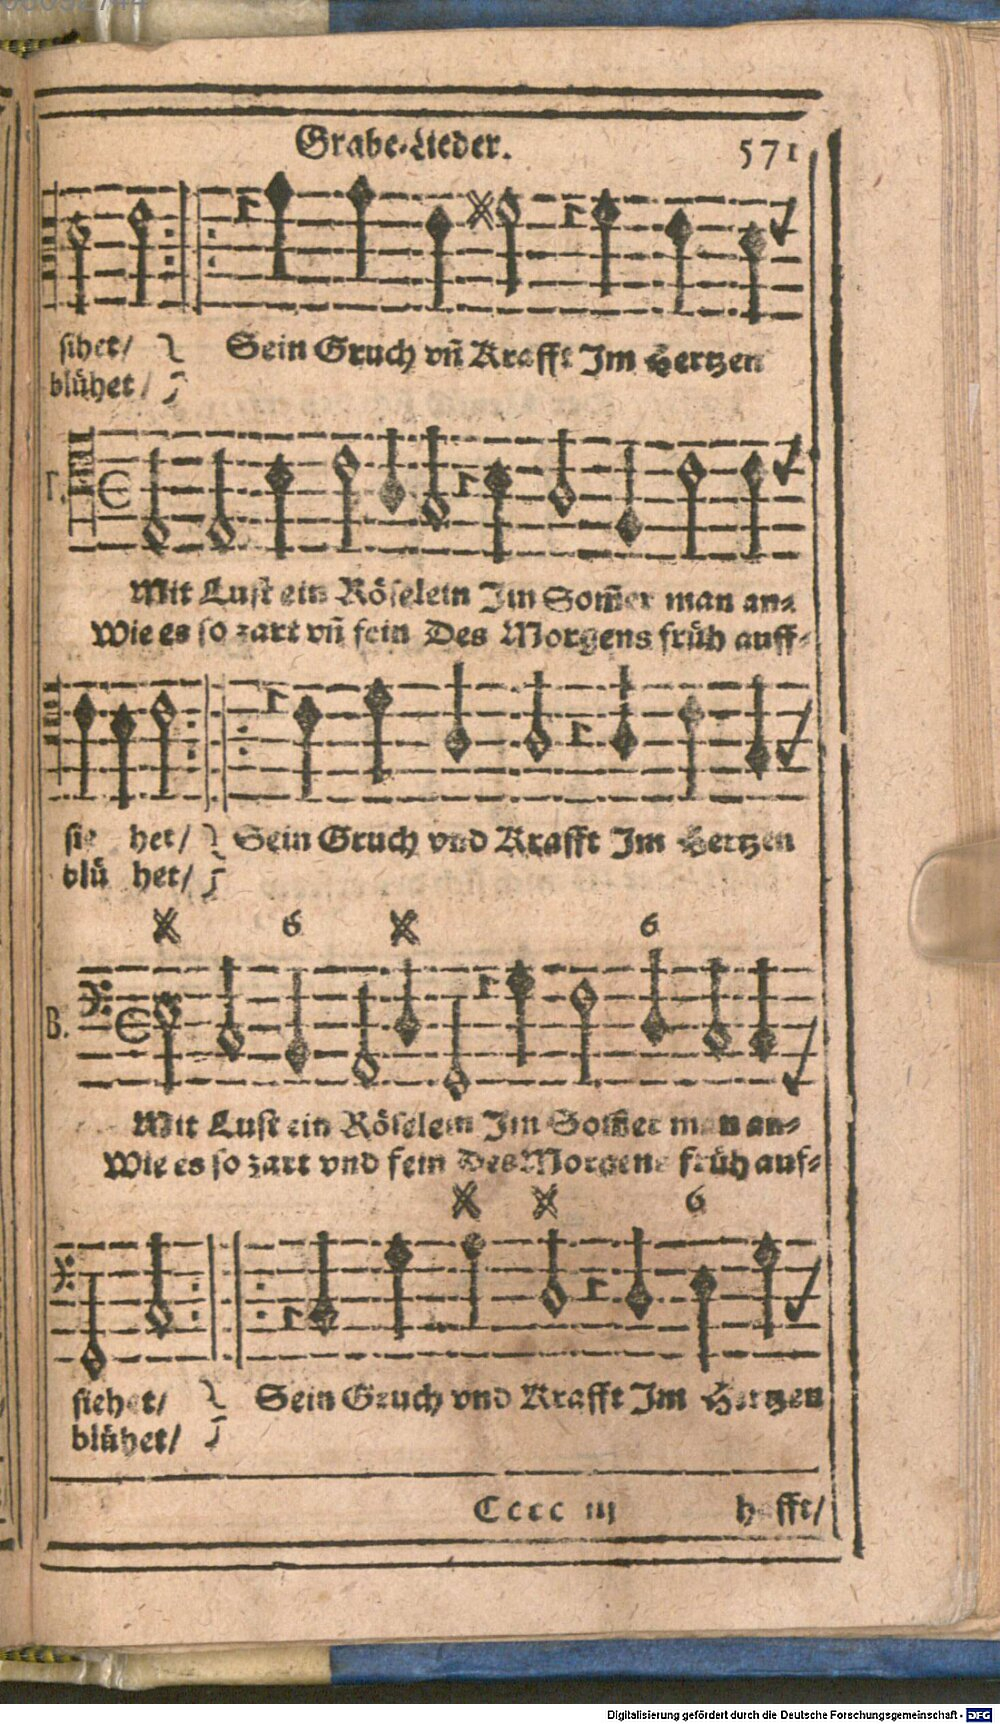 Grabe-Lieder. 571
sihet/ Sein Gruch vñ Krafft Im Hertzen
blühet/
T.
Mit Lust ein Röselein Im Som̃er man an-
Wie es so zart vñ fein Des Morgens früh auff-
sie het/ Sein Gruch vnd Krafft Im Hertzen
blü het/
6 6
B.
Mit Lust ein Röselein Im Som̃er man an-
Wie es so zart vnd fein Des Morgens früh auf-
6
siehet/ Sein Gruch vnd Krafft Im Hertzen
blühet/
Cccc iij hafft/
Digitalisierung gefördert durch die Deutsche Forschungsgemeinschaft - DFG